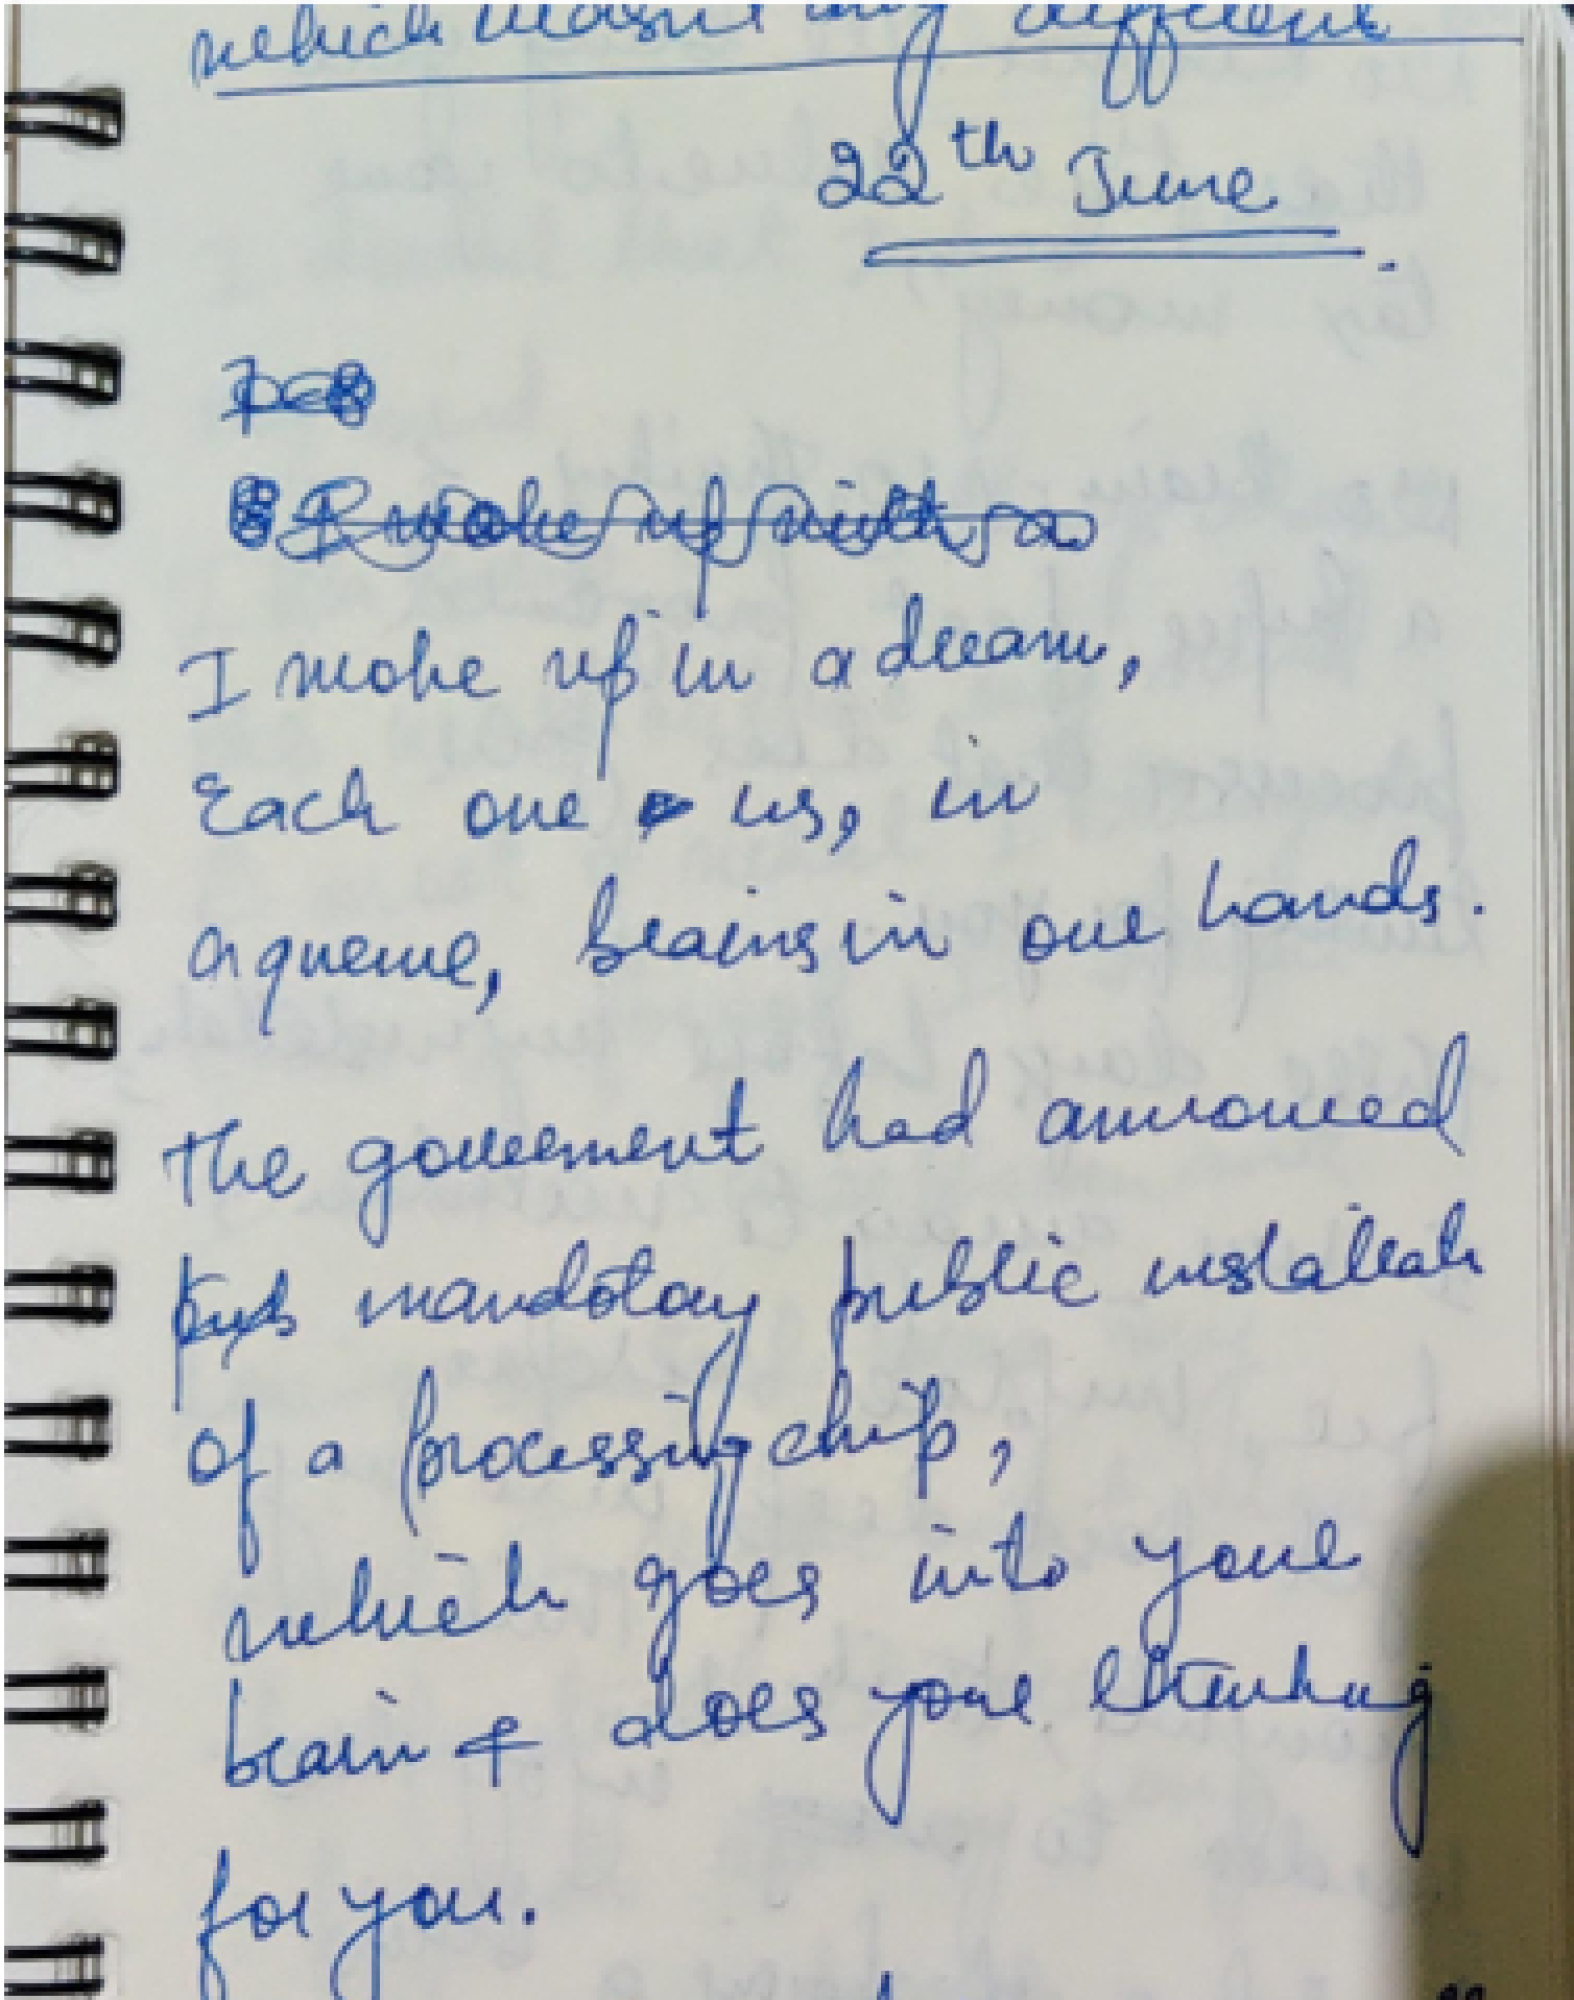 which wasn't any different
22th June
I woke up with a
I woke up in a dream,
Each one us, in
a queue, brains in our hands.
The goverment had announced
mandotary public installatn
of a processing chip,
which goes into your
brain & does your thinking
for you.